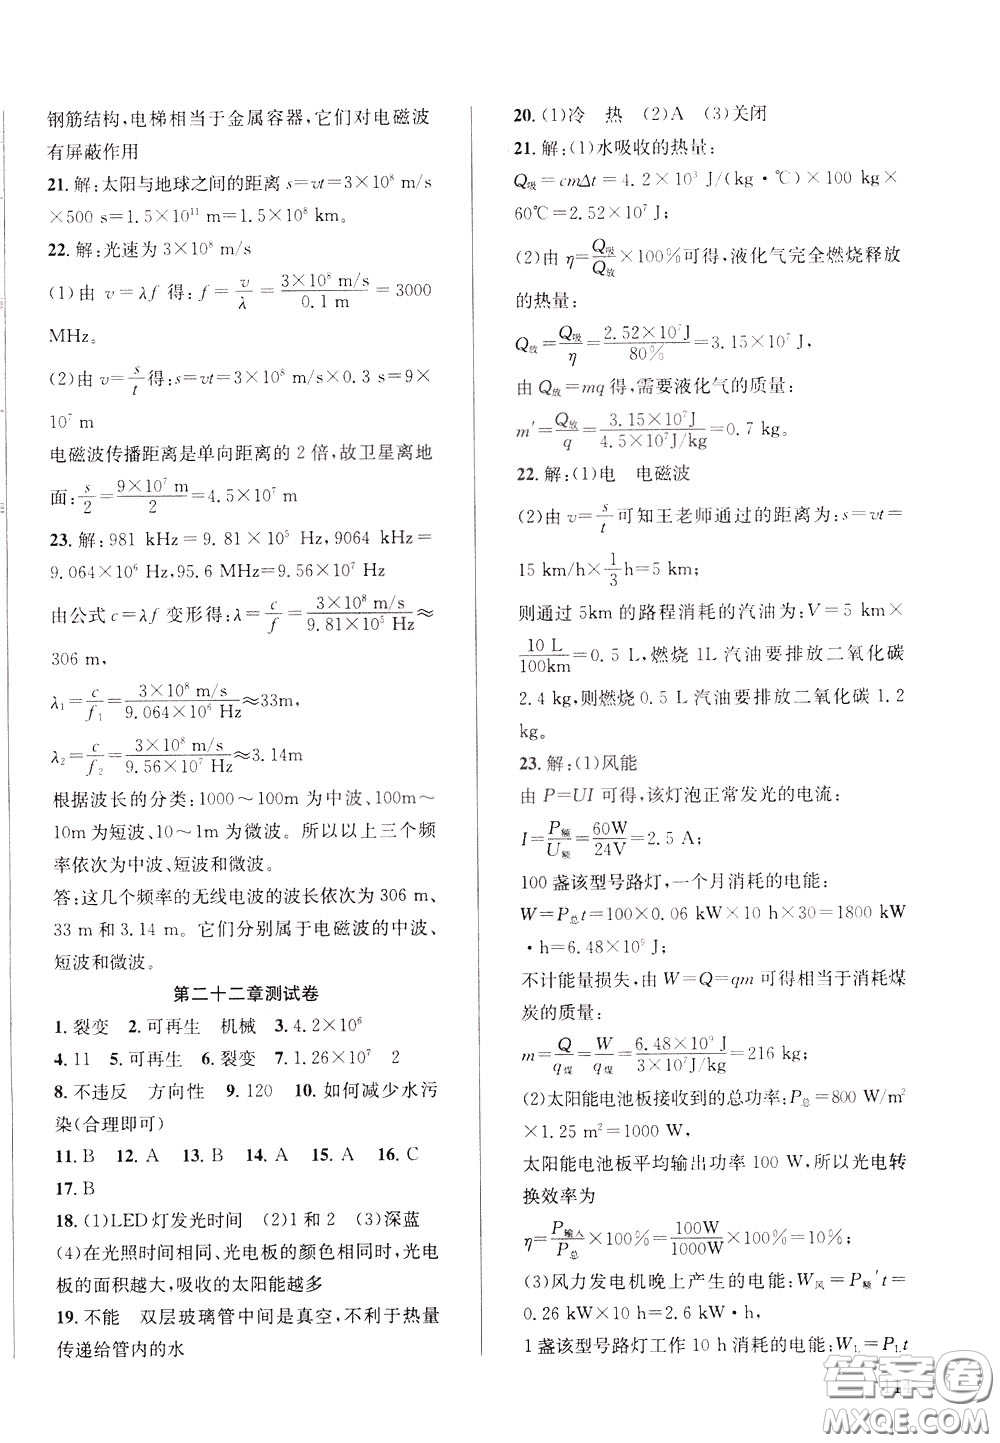 钢筋结构,电梯相当于金属容器,它们对电磁波
有屏蔽作用
21.解:太阳与地球之间的距离 s=vt=3×10⁸ m/s
×500 s=1.5×10¹¹ m=1.5×10⁸ km。
22.解:光速为 3×10⁸ m/s
(1)由 v=λf 得:f=v/λ=3×10⁸ m/s/0.1 m=3000
MHz。
(2)由 v=s/t得:s=vt=3×10⁸ m/s×0.3 s=9×
10⁷ m
电磁波传播距离是单向距离的 2 倍,故卫星离地
面:s/2=9×10⁷ m/2=4.5×10⁷ m
23.解:981 kHz=9.81×10⁵ Hz,9064 kHz=
9.064×10⁶ Hz,95.6 MHz=9.56×10⁷ Hz
由公式 c=λf 变形得:λ=c/f=3×10⁸ m/s/9.81×10⁵ Hz≈
306 m,
λ₁=c/f₁=3×10⁸ m/s/9.064×10⁶ Hz≈33m,
λ₂=c/f₂=3×10⁸ m/s/9.56×10⁷ Hz≈3.14m
根据波长的分类:1000～100m 为中波、100m～
10m 为短波、10～1m 为微波。所以以上三个频
率依次为中波、短波和微波。
答:这几个频率的无线电波的波长依次为 306 m、
33 m 和 3.14 m。它们分别属于电磁波的中波、
短波和微波。
第二十二章测试卷
1.裂变 2.可再生 机械 3.4.2×10⁶
4.11 5.可再生 6.裂变 7.1.26×10⁷ 2
8.不违反 方向性 9.120 10.如何减少水污
染(合理即可)
11.B 12.A 13.B 14.A 15.A 16.C
17.B
18.(1)LED灯发光时间 (2)1 和 2 (3)深蓝
(4)在光照时间相同、光电板的颜色相同时,光电
板的面积越大,吸收的太阳能越多
19.不能 双层玻璃管中间是真空,不利于热量
传递给管内的水
20.(1)冷 热 (2)A (3)关闭
21.解:(1)水吸收的热量:
Q吸=cmΔt=4.2×10³ J/(kg·℃)×100 kg×
60℃=2.52×10⁷ J;
(2)由 η=Q吸/Q放×100%可得,液化气完全燃烧释放
的热量:
Q放=Q吸/η=2.52×10⁷J/80%=3.15×10⁷J,
由 Q放=mq 得,需要液化气的质量:
m′=Q放/q=3.15×10⁷J/4.5×10⁷J/kg=0.7 kg。
22.解:(1)电 电磁波
(2)由 v=s/t可知王老师通过的距离为:s=vt=
15 km/h×1/3h=5 km;
则通过 5km 的路程消耗的汽油为:V=5 km×
10 L/100km=0.5 L,燃烧 1L 汽油要排放二氧化碳
2.4 kg,则燃烧 0.5 L 汽油要排放二氧化碳 1.2
kg。
23.解:(1)风能
由 P=UI 可得,该灯泡正常发光的电流:
I=P额/U额=60W/24V=2.5 A;
100 盏该型号路灯,一个月消耗的电能:
W=P总t=100×0.06 kW×10 h×30=1800 kW
·h=6.48×10⁹ J;
不计能量损失,由 W=Q=qm 可得相当于消耗煤
炭的质量:
m=Q/q煤=W/q煤=6.48×10⁹ J/3×10⁷J/kg=216 kg;
(2)太阳能电池板接收到的总功率:P总=800 W/m²
×1.25 m²=1000 W;
太阳能电池板平均输出功率 100 W,所以光电转
换效率为
η=P输入/P总×100%=100W/1000W×100%=10%;
(3)风力发电机晚上产生的电能:W风=P额′t=
0.26 kW×10 h=2.6 kW·h,
1 盏该型号路灯工作 10 h 消耗的电能:W₁=P₁t
答案圈
MXQE.COM